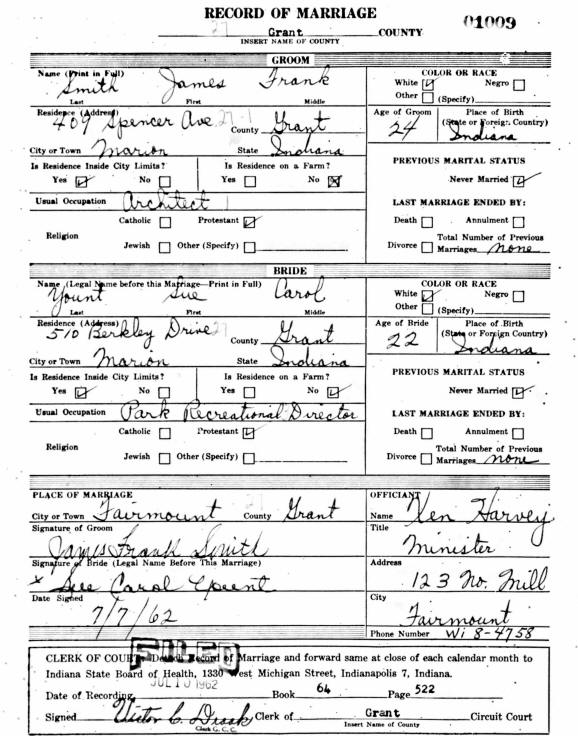 RECORD OF MARRIAGE
01009
27 Grant COUNTY
INSERT NAME OF COUNTY
GROOM
Name (Print in Full)
Smith James Frank
Last First Middle
COLOR OR RACE
White ☑ Negro ☐
Other ☐ (Specify)
Residence (Address)
409 Spencer Ave 27-1 County Grant
Age of Groom
24
Place of Birth
(State or Foreign Country)
Indiana
City or Town Marion State Indiana
Is Residence Inside City Limits? Is Residence on a Farm?
Yes ☑ No ☐ Yes ☐ No ☒
PREVIOUS MARITAL STATUS
Never Married ☑
Usual Occupation Architect
LAST MARRIAGE ENDED BY:
Religion
Catholic ☐ Protestant ☑
Jewish ☐ Other (Specify) ☐
Death ☐ Annulment ☐
Divorce ☐ Total Number of Previous
Marriages none
BRIDE
Name (Legal Name before this Marriage—Print in Full)
Yount Sue Carol
Last First Middle
COLOR OR RACE
White ☑ Negro ☐
Other ☐ (Specify)
Residence (Address)
510 Berkley Drive 27 County Grant
Age of Bride
22
Place of Birth
(State or Foreign Country)
Indiana
City or Town Marion State Indiana
Is Residence Inside City Limits? Is Residence on a Farm?
Yes ☑ No ☐ Yes ☐ No ☑
PREVIOUS MARITAL STATUS
Never Married ☑
Usual Occupation Park Recreational Director
LAST MARRIAGE ENDED BY:
Religion
Catholic ☐ Protestant ☑
Jewish ☐ Other (Specify) ☐
Death ☐ Annulment ☐
Divorce ☐ Total Number of Previous
Marriages none
PLACE OF MARRIAGE
City or Town Fairmount County Grant
27
OFFICIANT
Name Ken Harvey
Signature of Groom
James Frank Smith
Title
Minister
Signature of Bride (Legal Name Before This Marriage)
x Sue Carol
Address
123 No. Mill
Date Signed
7/7/62
City
Fairmount
Phone Number Wi 8-4758
FILED
JUL 10 1962
CLERK OF COURT: Record of Marriage and forward same at close of each calendar month to
Indiana State Board of Health, 1330 West Michigan Street, Indianapolis 7, Indiana.
Date of Recording Book 64 Page 522
Signed Victor C. Clerk of Grant Circuit Court
Clerk G. C. C. Insert Name of County